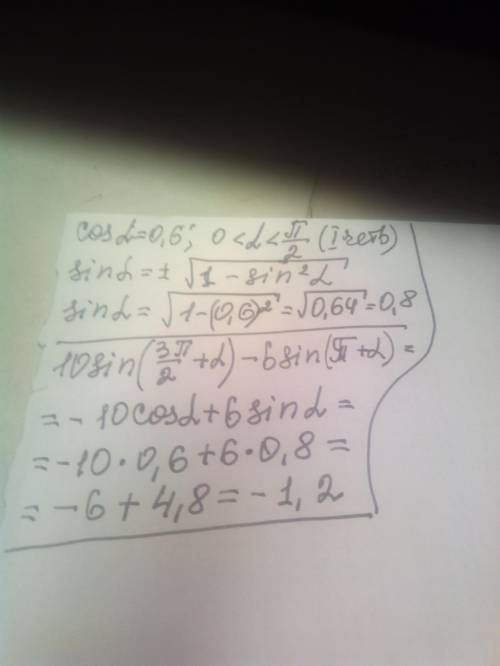 cosα=0,6; 0<α<π/2 (I четв)
sinα=±√(1-sin²α)
sinα=√(1-(0,6)²)=√0,64=0,8
10sin(3π/2+α)-6sin(π+α)=
=-10cosα+6sinα=
=-10·0,6+6·0,8=
=-6+4,8=-1,2